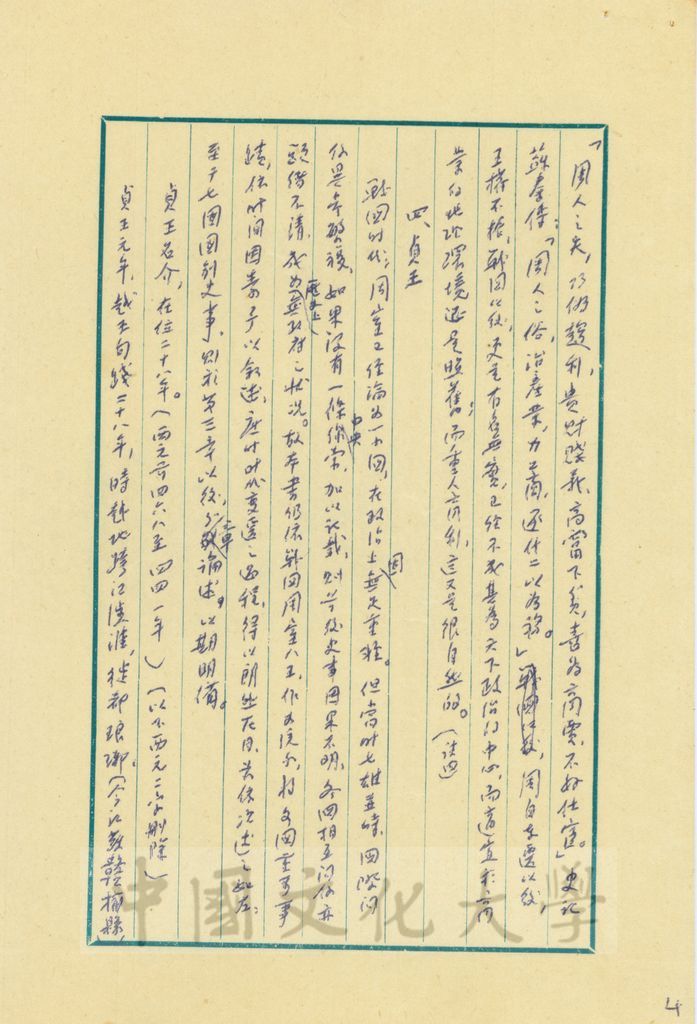 「周人之失,巧偽趨利,貴財賤義,高富下貧,喜為商賈,不好仕宦。」史記
蘇秦傳:「周人之俗,治產業,力工商,逐什二以為務。」戰國以後,周自東遷以後,
王權不振,戰國以後,更是有名無實,已經不成其為天下政治的中心,而適宜於商
業的地理環境還是照舊;而重人之利,這又是很自然的。
四、貞王
戰國時代,周室已經淪為一小國,在政治上無足重輕。但當時七雄並峙,國際間
如果沒有一條中央線索,加以記載,則前後史事因果不明,各國相互關係亦
頭緒不清,成為歷史上無政府之狀況。故本書仍依戰國周室八王,作為統系,將各國重要事
蹟,依時間因素予以敘述,庶時代變遷之過程,得以朗然在目,茲依次述之如左:
至于七國國別史事,則於第三章以後,分章論述,以期明備。
貞王名介,在位二十八年。(西元前四六八至四四一年)(以下西元二字刪除)
貞王元年,越王句踐二十八年,時越地跨江淮,徙都琅琊(今江蘇贛榆縣,
中國文化大學
4